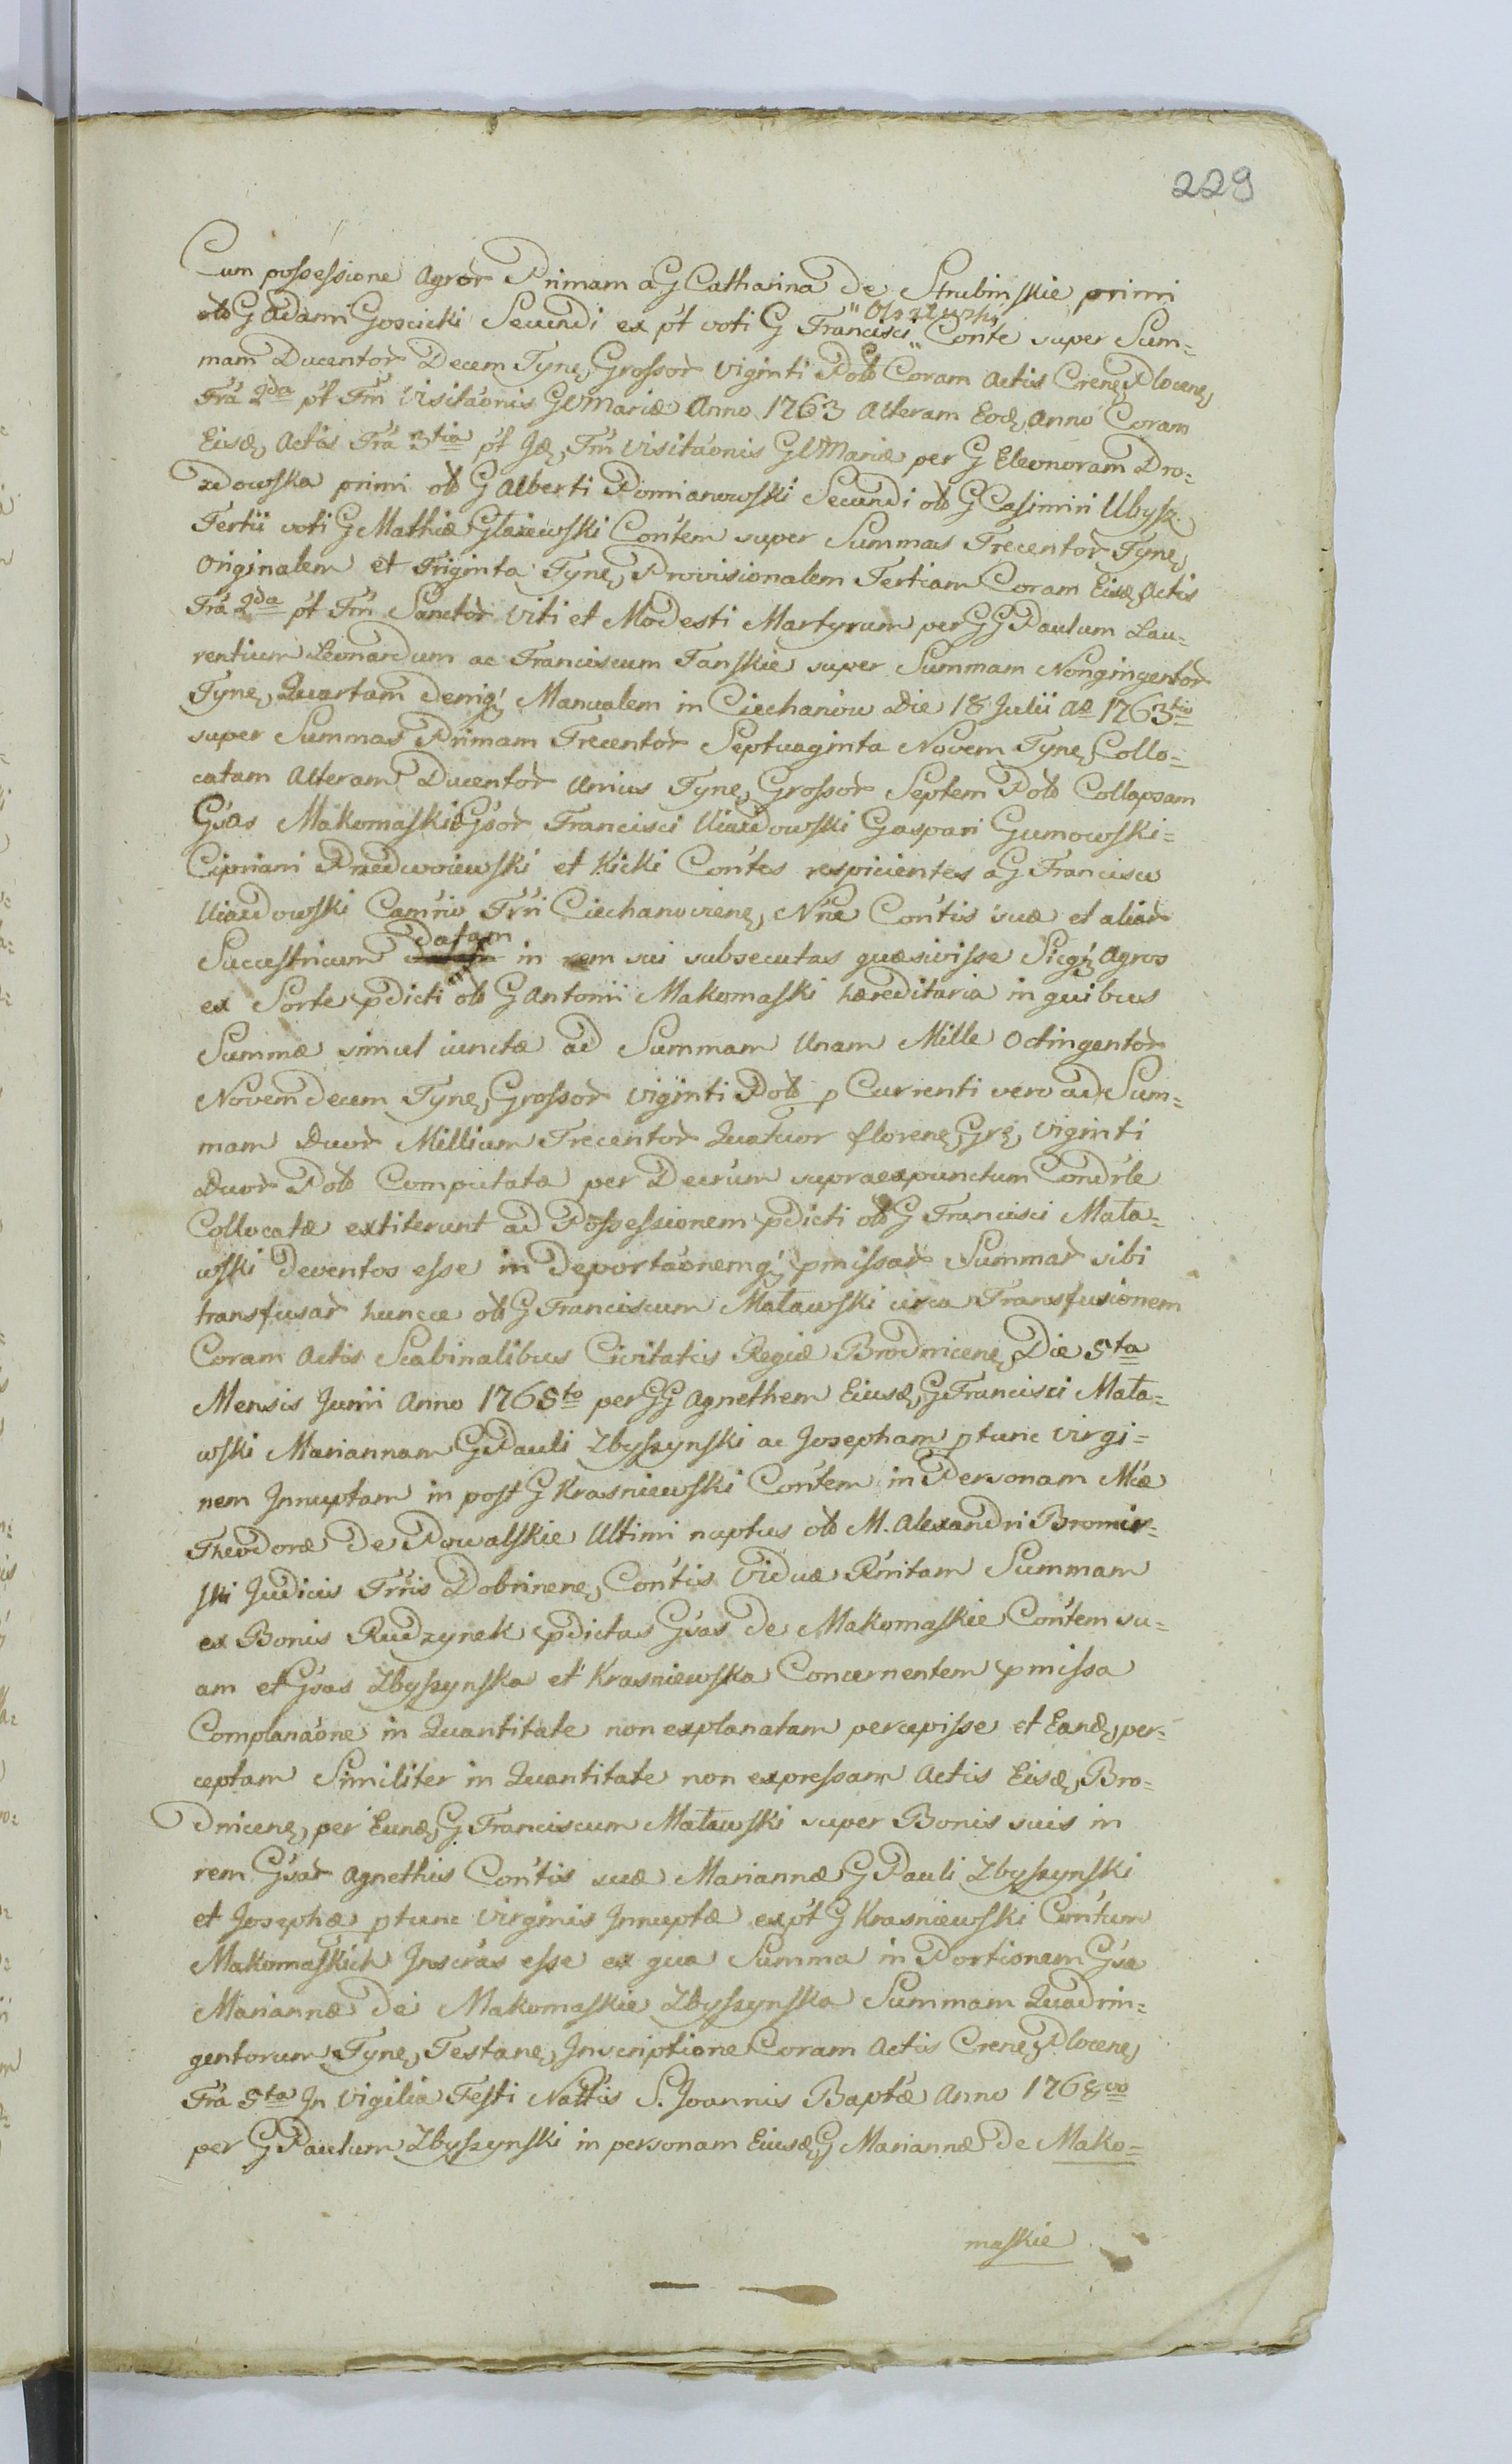 229
Cum possessione Agror Primam a G Catharina De Strubinskie primi
olo G Adami Gościcki Secundi ex pt voti G Francisci Conte super Sum=
mam Ducentor Decem Tyne, Grossor viginti Polo Coram Actis Crene, Plocene,
Fra 2da pt Fm Visitaonis GVMariæ Anno 1763 Alteram Eod, Anno Coram
Eisd, Actis Fra 3tia pt Id, Fm Visitaonis GVMariæ per G Eleonoram Dro=
zdowska primi olo G Alberti Pomianowski Secundi olo G Casimiri Ubysz
Tertii voti G Mathiæ Glaiewski Contem super Summas Trecentor Tyne,
Originalem et Triginta Tyne, Provisionalem Tertiam Coram Eisd, Actis
Fra 2da pt Fm Sanctor Viti et Modesti Martyrum per GG Paulum Lau=
rentium Leonardum ac Franciscum Tanskie super Summam Nongingentor
Tyne, Quartam deniq Manualem in Ciechanow Die 18 Julii Ao 1763tio
super Summas Primam Trecentor Septuaginta Novem Tyne, Collo=
catam Alteram Ducentor Unius Tyne, Grossor Septem Polo Collapsam
Gsas Makomaski Gsor Francisci Uiazdowski Gaspari Gumowski=
Cipriani Przedwoiewski et Kicki Contes respicientes a G Francisco
Uiazdowski Camrio Trri Ciechanoviene, Nne Contis suæ et aliar
Sucestricum datam in rem sui subsecutas quæsivisse Sicq Agros
ex Sorte pdicti olo G Antonii Makomaski hæreditaria in quibus
Summæ simul iunctæ ad Summam Unam Mille Octingentor
Novem decem Tyne, Grossor viginti Polo p Currenti vero ad Sum=
mam Duor Millium Trecentor Quatuor florene, Gre, viginti
Duor Polo Computatæ per Decrum supraexpunctum Condrle
Collocatæ extiterunt ad Possessionem pdicti olo G Francisci Mala=
wski deventos esse in deportaonemq pmissar Summar sibi
transfusar huncce olo G Franciscum Malawski circa Transfusionem
Coram Actis Scabinalibus Civitatis Regiæ Brodnicene, Die 5ta
Mensis Junii Anno 1765to per GG Agnethem Eiusd, G Francisci Mala=
wski Mariannam G Pauli Zbyszynski ac Josepham ptunc virgi=
nem Innuptam in post G Krasniewski Contem in Personam Mcæ
Theodoræ De Powalskie Ultimi nuptus olo M. Alexandri Bromir=
ski Judicis Trris Dobrinene, Contis Viduæ Rmitam Summam
ex Bonis Rudzynek pdictas Gsas De Makomaskie Contem su=
am et Gsas Zbyszynska et Krasniewska Concernentem pmissa
Complanaone in Quantitate non explanatam percepisse et Eand, per=
ceptam Similiter in Quantitate non expressam Actis Eisd, Bro=
dnicene, per Eund, G Franciscum Malawski super Bonis suis in
rem Gsar Agnethis Contis suæ Mariannæ G Pauli Zbyszynski
et Josephæ ptunc Virginis Innuptæ expt G Krasniewski Contum
Makomaskich Inscras esse ex qua Summa in Portionem Gsæ
Mariannæ De Makomaskie Zbyszynska Summam Quadrin=
gentorum Tyne, Testane, Inscriptione Coram Actis Crene, Plocene,
Fra 5ta In Vigilia Festi Nattis S. Joannis Baptæ Anno 1768vo
per G Paulum Zbyszynski in personam Eiusd, G Mariannæ De Mako=
maskie